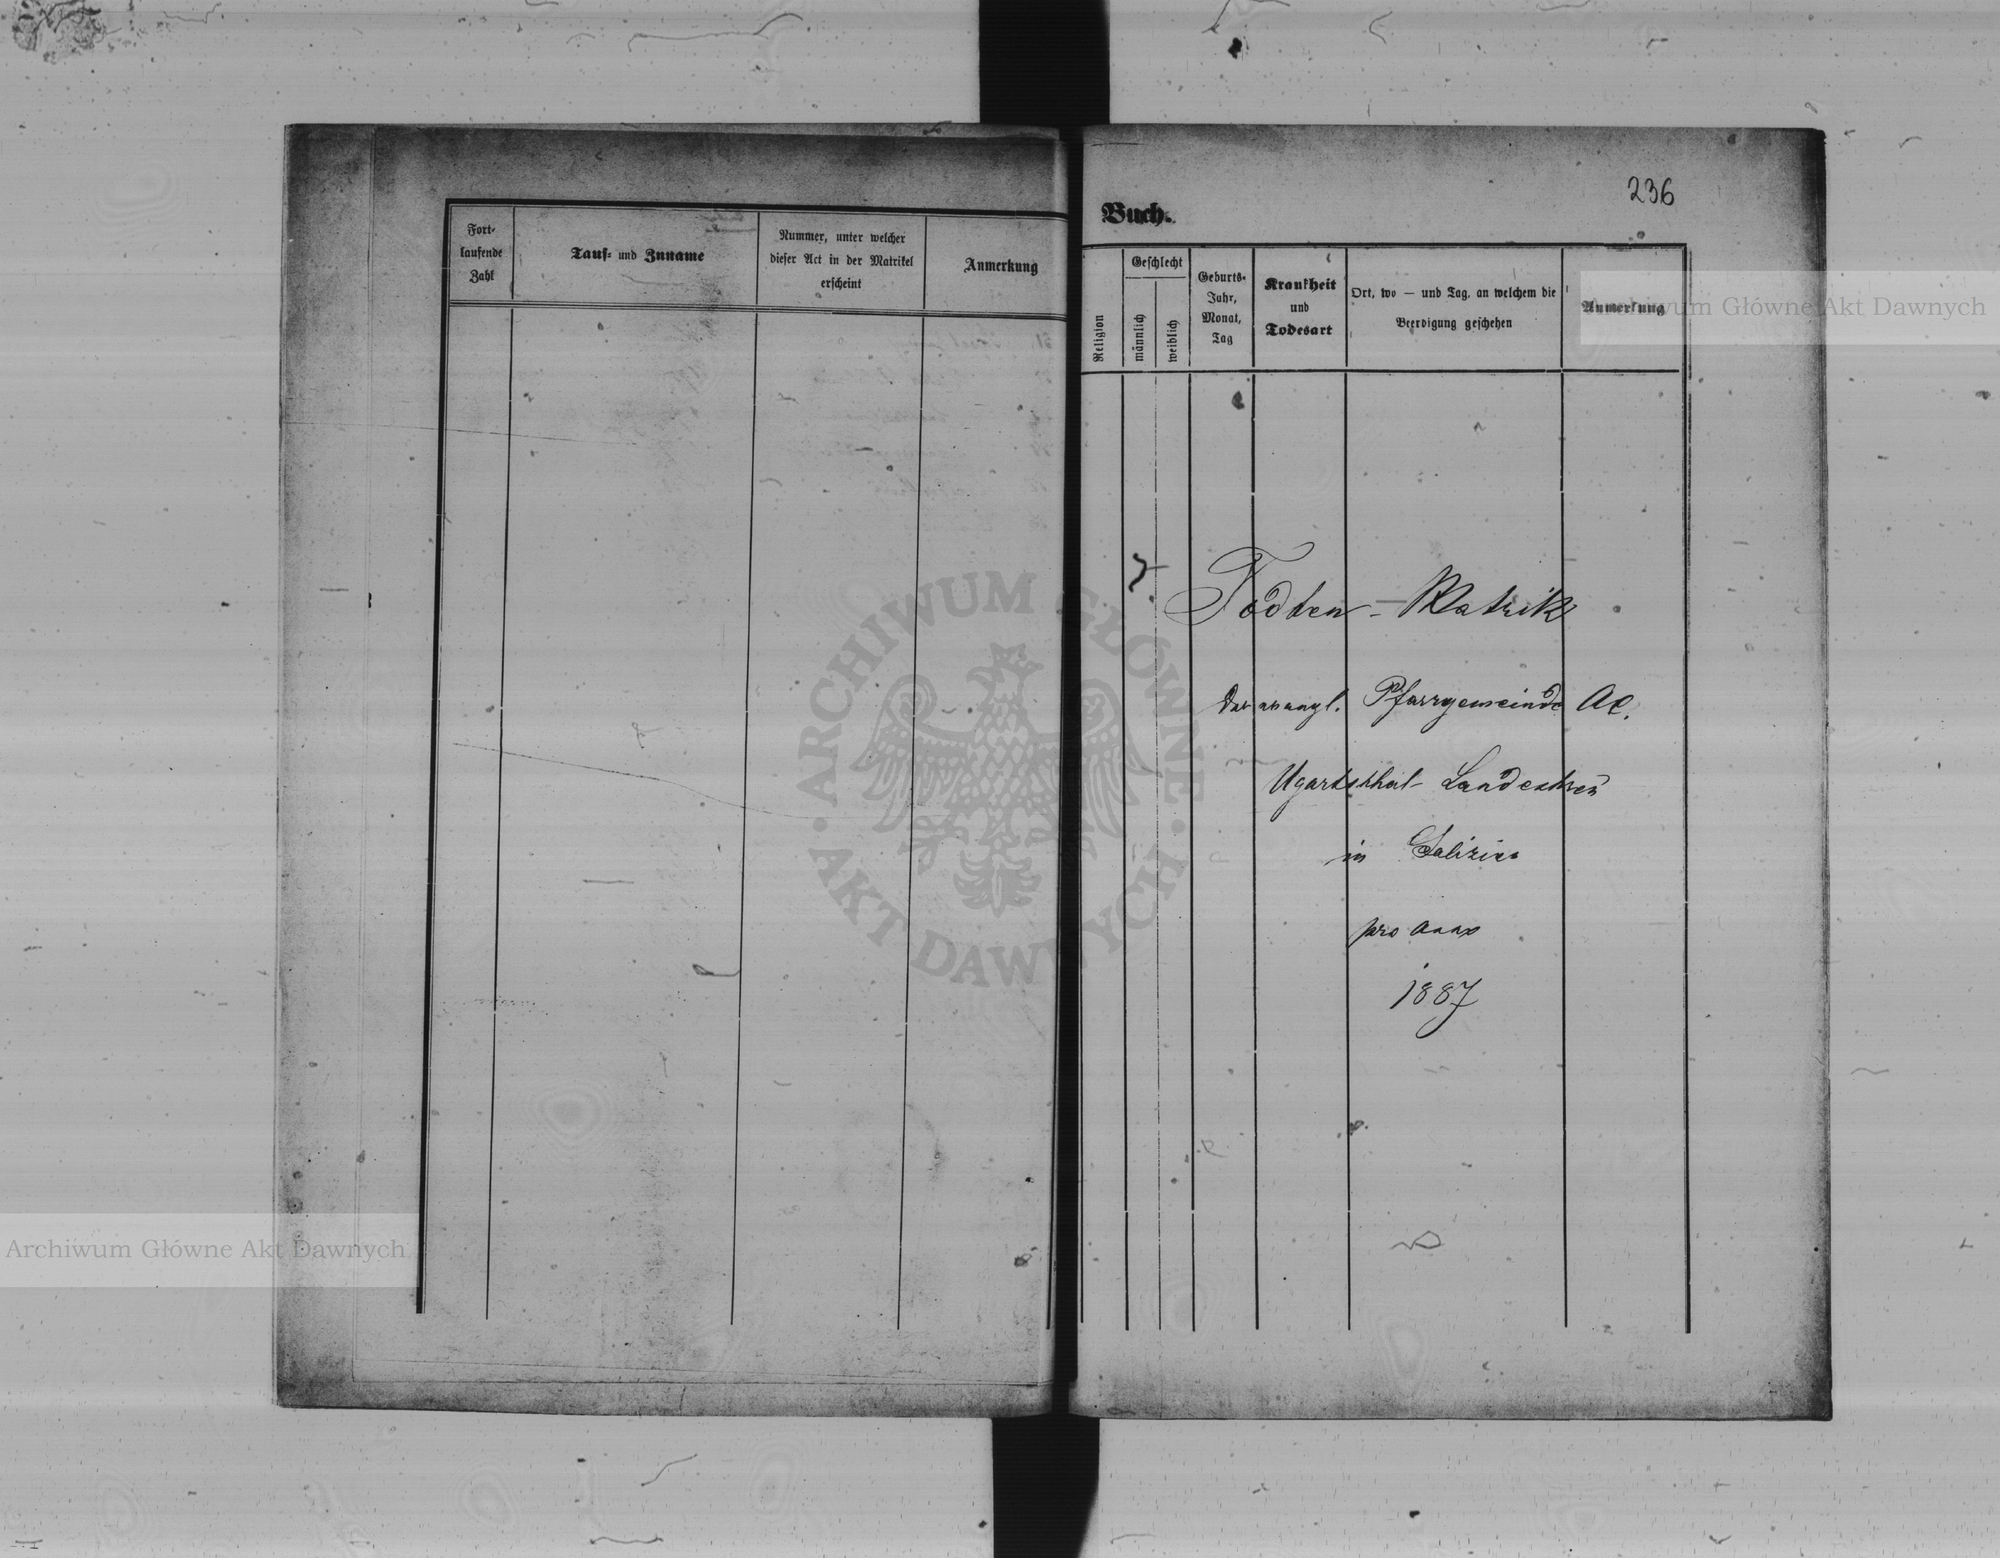 Fort-
laufende
Zahl
Tauf- und Zuname
Nummer, unter welcher
dieser Act in der Matrikel
erscheint
Anmerkung
236
Buch.
Religion
Geschlecht
männlich
weiblich
Geburts-
Jahr,
Monat,
Tag
Krankheit
und
Todesart
Ort, wo — und Tag, an welchem die
Beerdigung geschehen
Anmerkung
Archiwum Główne Akt Dawnych
Todten - Matrik
der evangl. Pfarrgemeinde AC.
Ugartsthal - Landestreu
in Galizien
pro anno
1887
ARCHIWUM GŁÓWNE · AKT DAWNYCH ·
Archiwum Główne Akt Dawnych